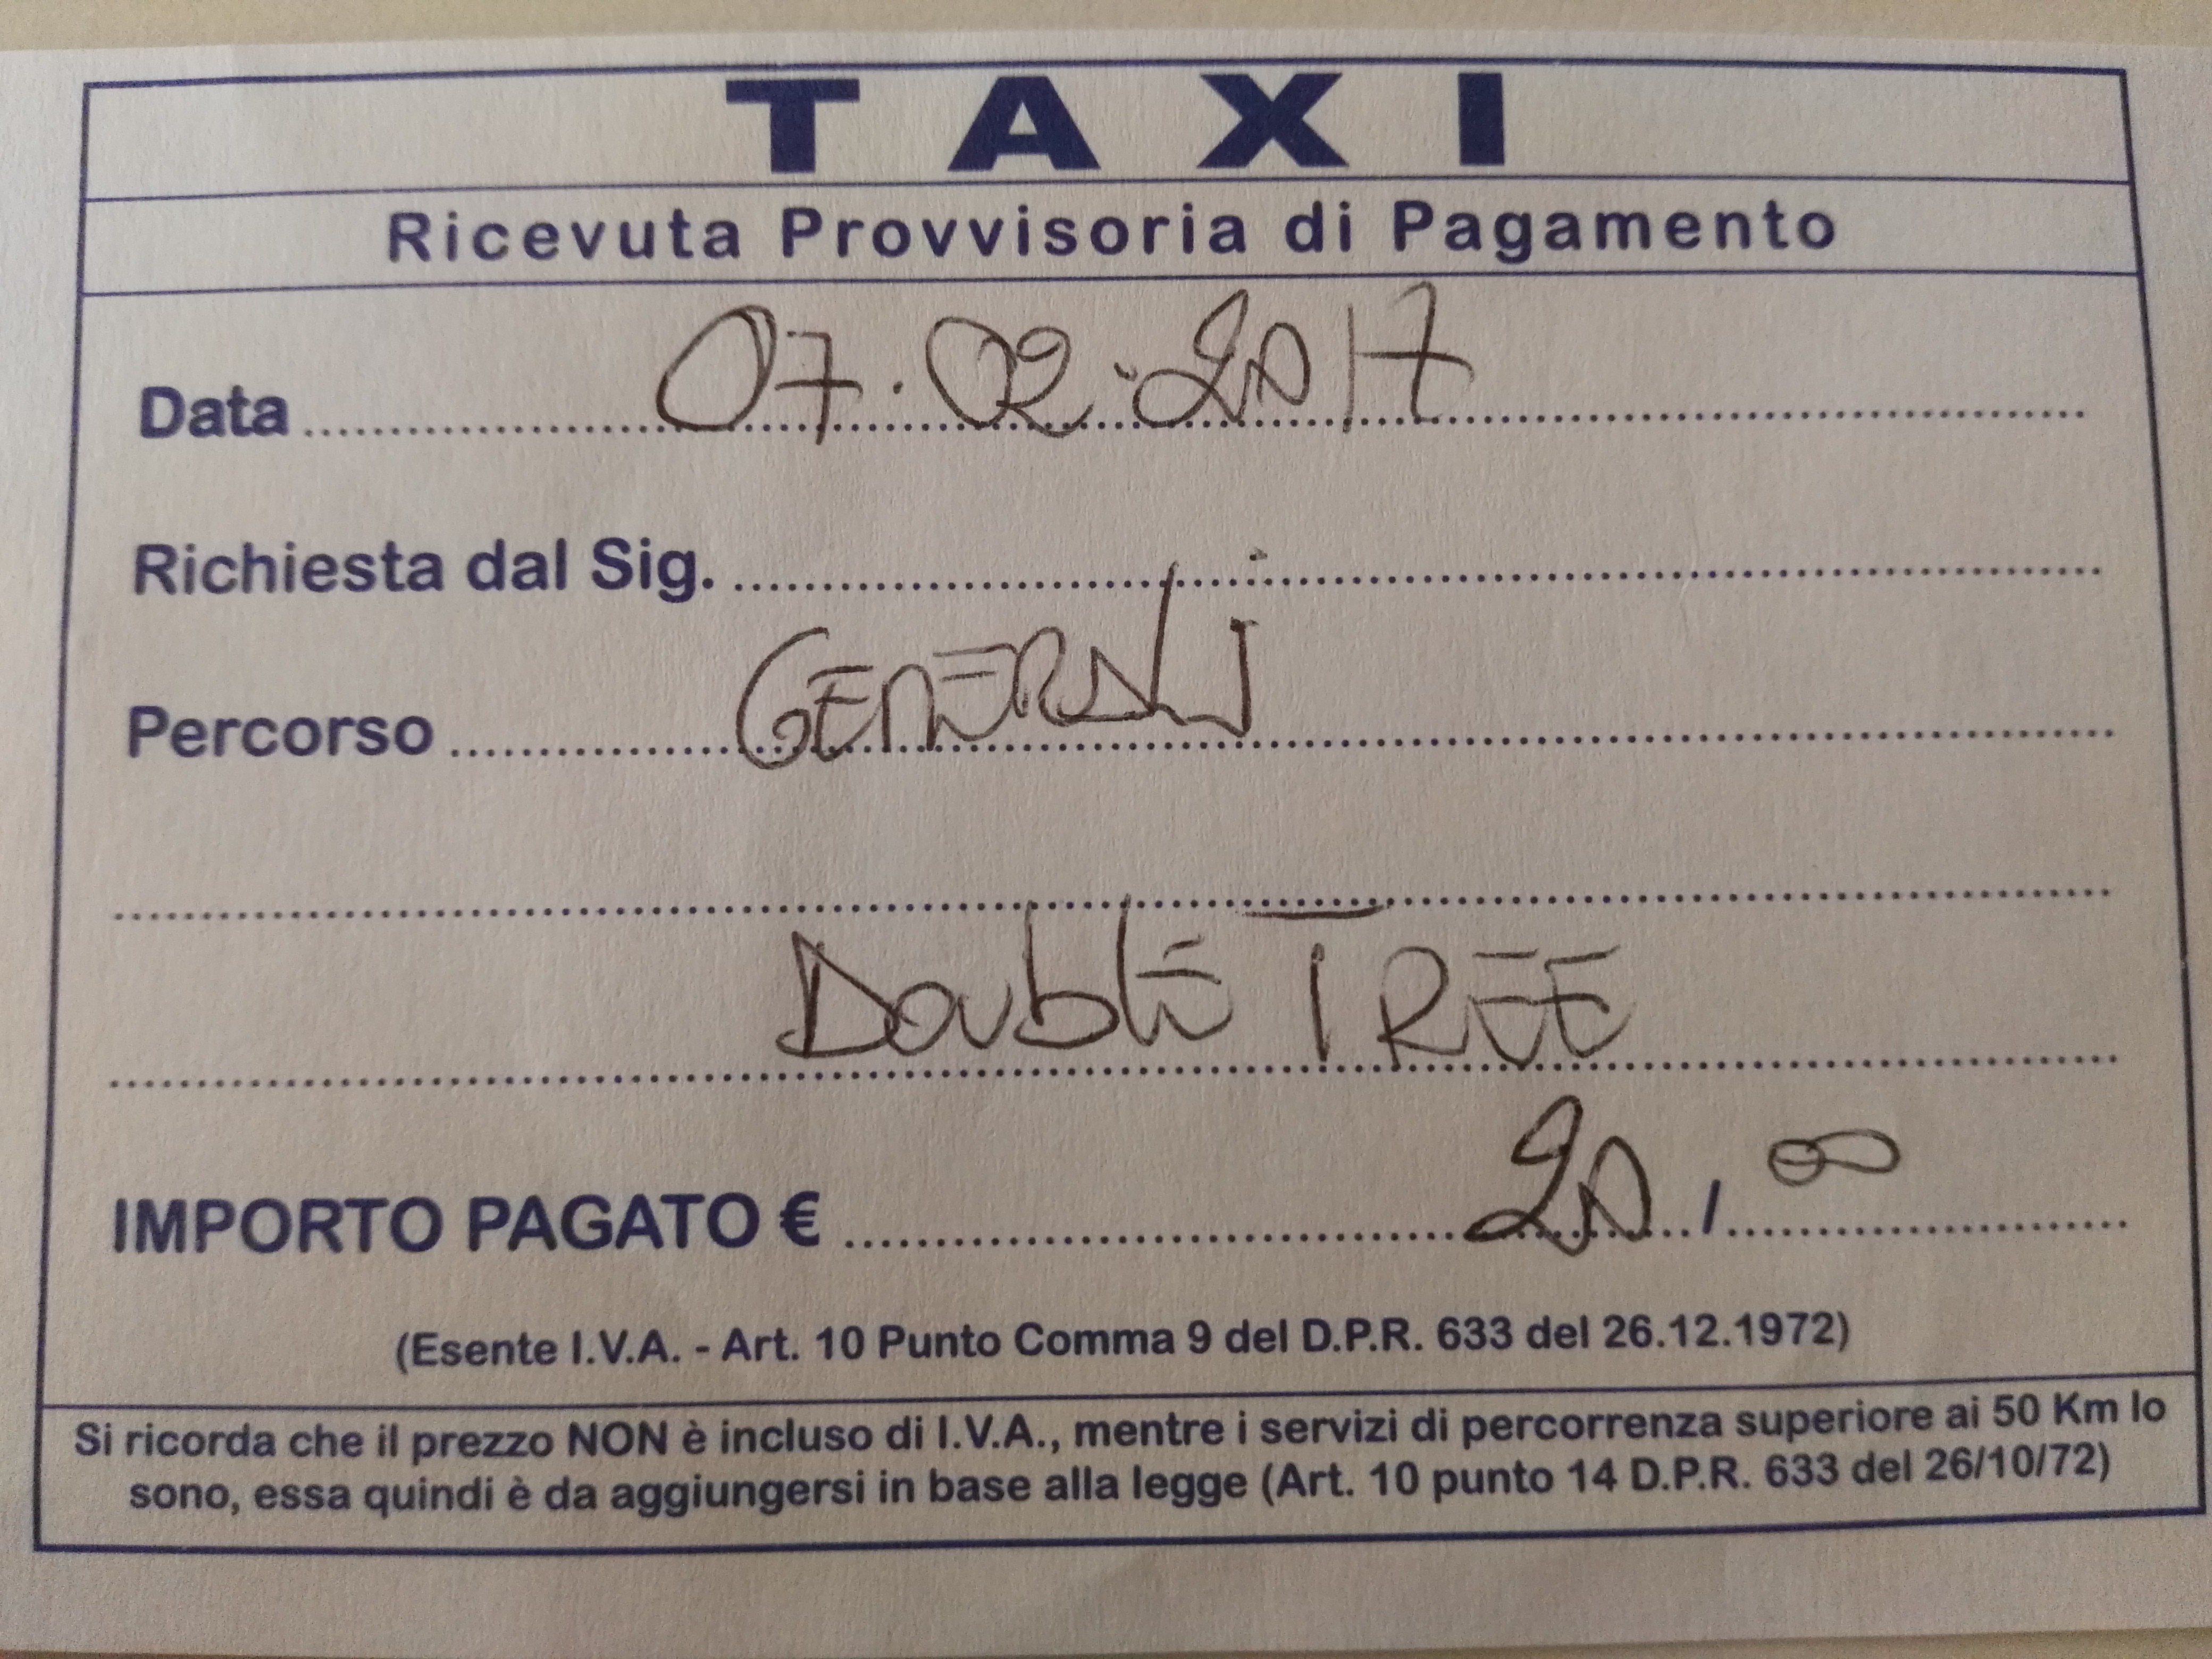 TAXI
Ricevuta Provvisoria di Pagamento
Data ........ 07.02.2017 ........
Richiesta dal Sig. ........
Percorso ........ GENERALI ........
........
Double TREE
IMPORTO PAGATO € ........ 20,00 ........
(Esente I.V.A. - Art. 10 Punto Comma 9 del D.P.R. 633 del 26.12.1972)
Si ricorda che il prezzo NON è incluso di I.V.A., mentre i servizi di percorrenza superiore ai 50 Km lo
sono, essa quindi è da aggiungersi in base alla legge (Art. 10 punto 14 D.P.R. 633 del 26/10/72)